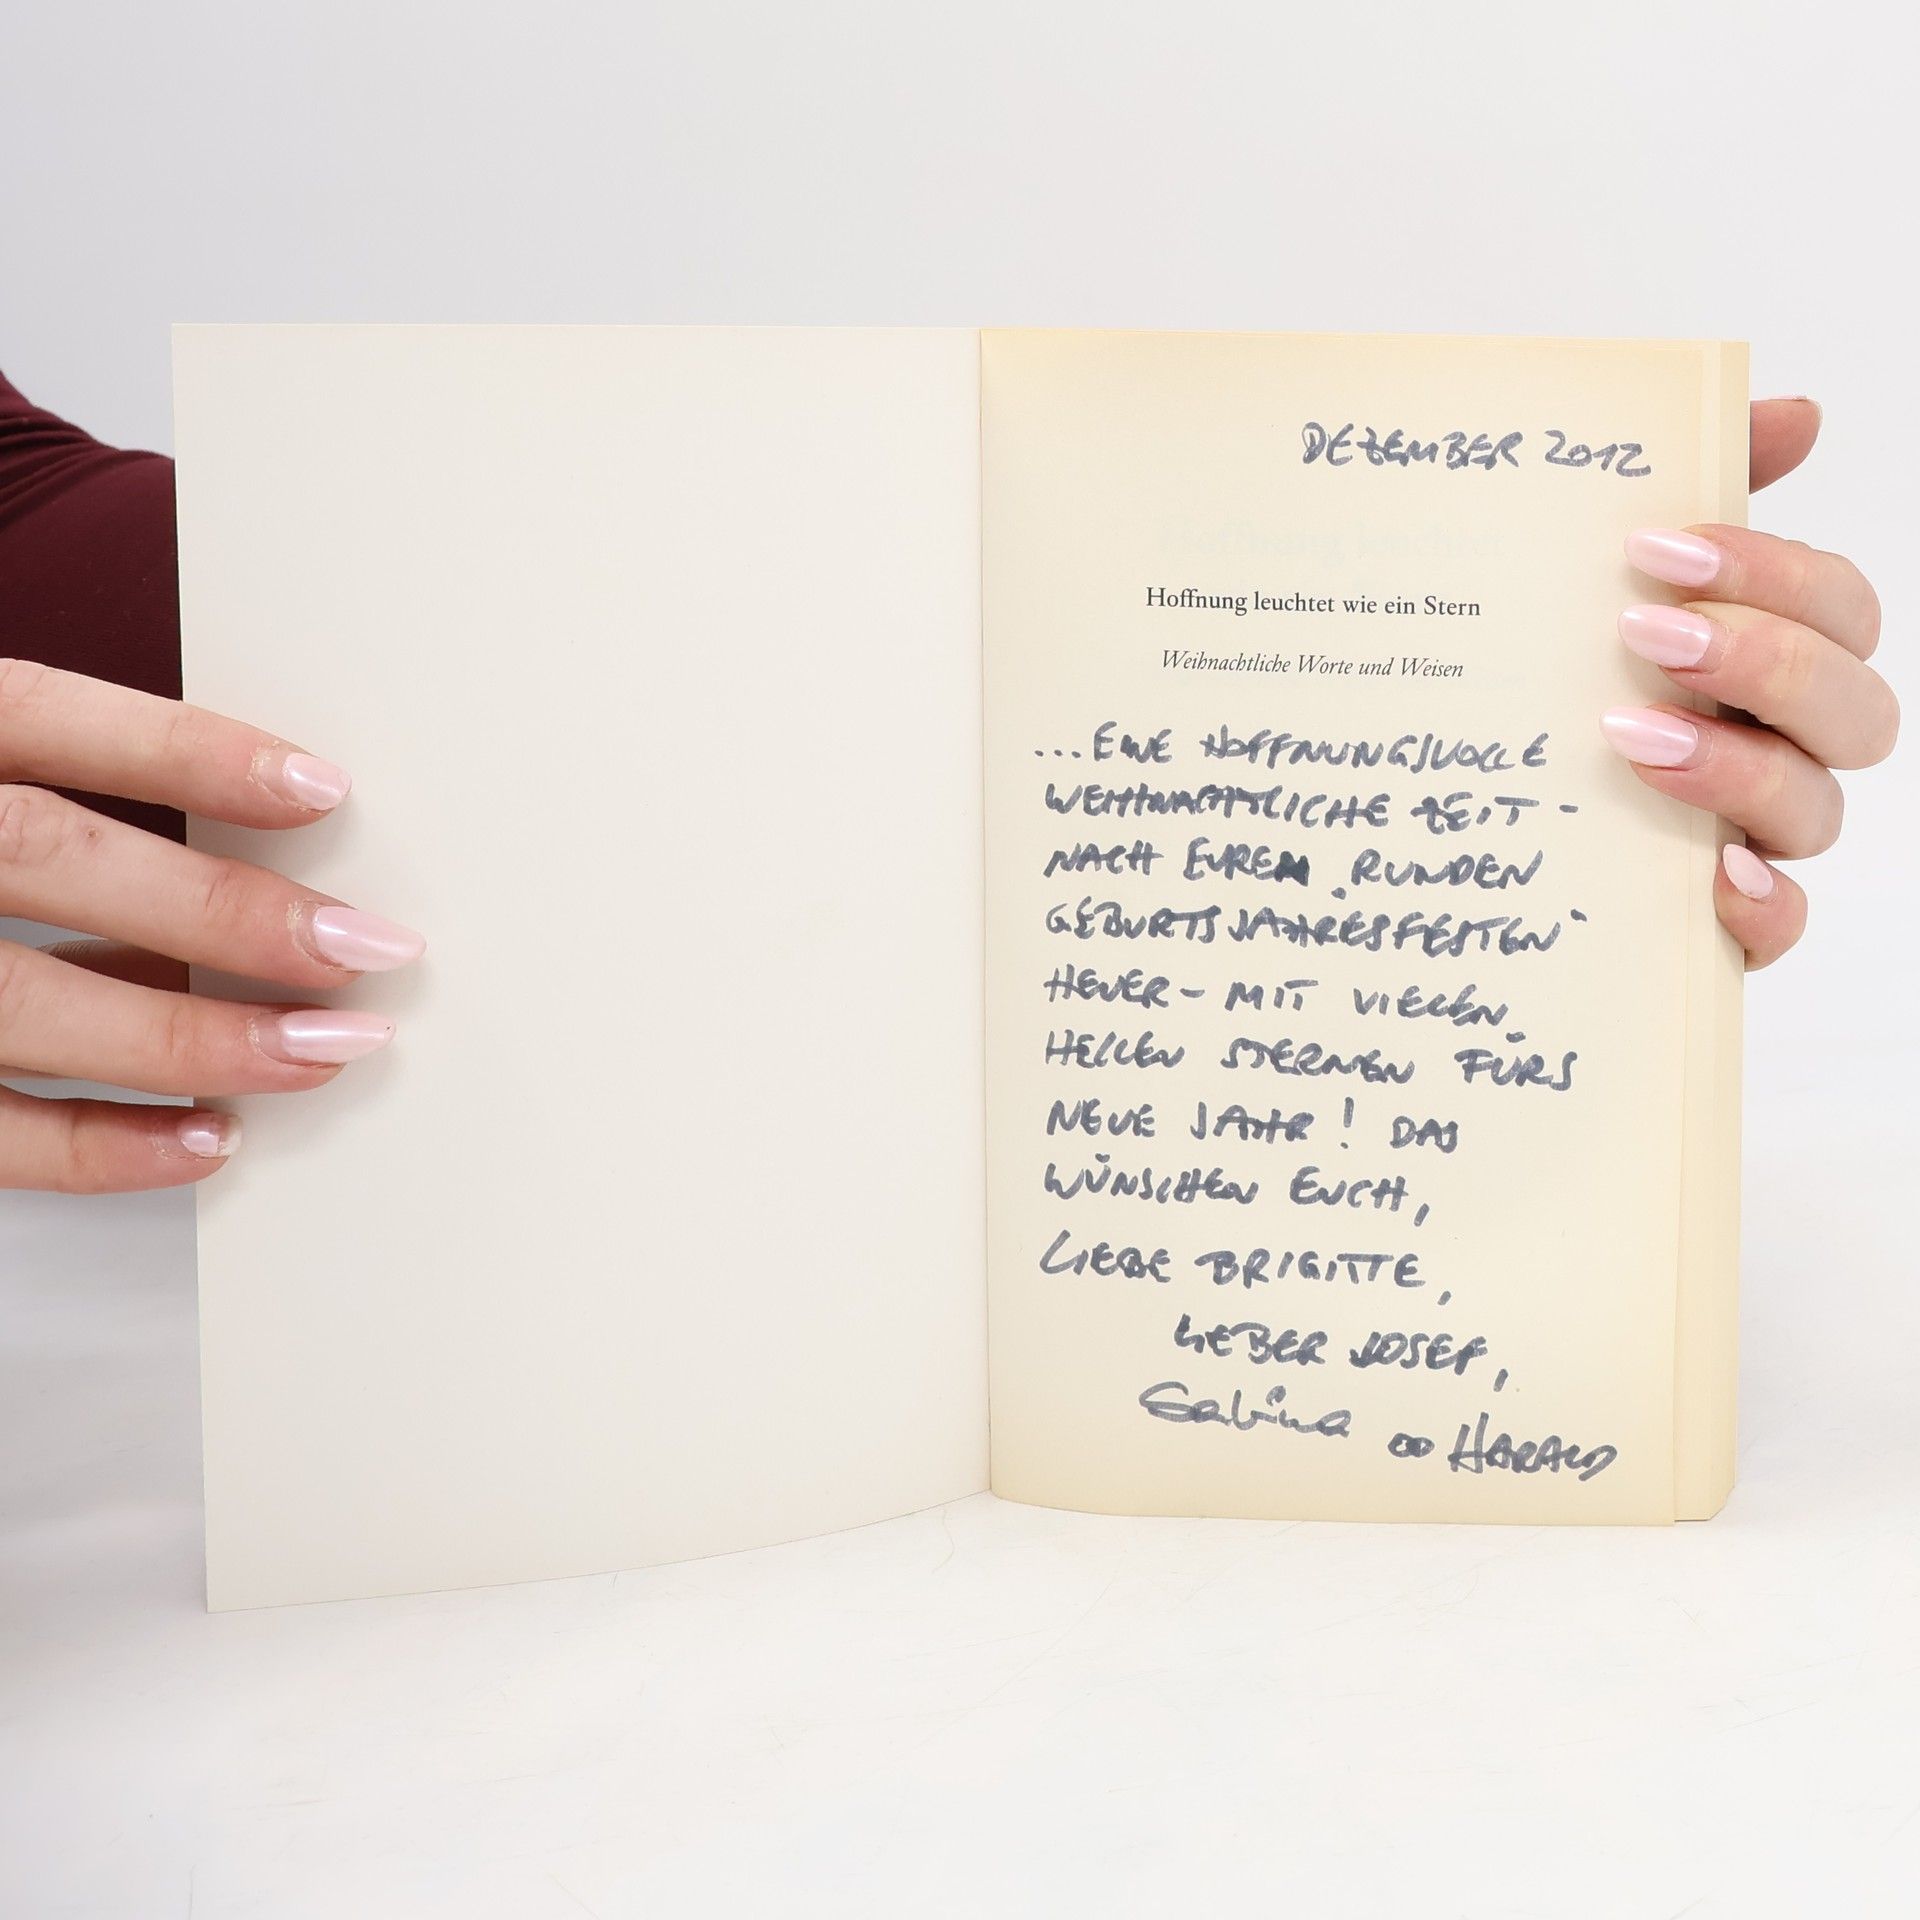 DEZEMBER 2012
Hoffnung leuchtet wie ein Stern
Weihnachtliche Worte und Weisen
...EINE HOFFNUNGSVOLLE
WEIHNACHTLICHE ZEIT -
NACH EUREN „RUNDEN
GEBURTSJAHRESFESTEN“
HEUER - MIT VIELEN
HELLEN STERNEN FÜRS
NEUE JAHR! DAS
WÜNSCHEN EUCH,
LIEBE BRIGITTE,
LIEBER JOSEF,
Sabina
HARALD